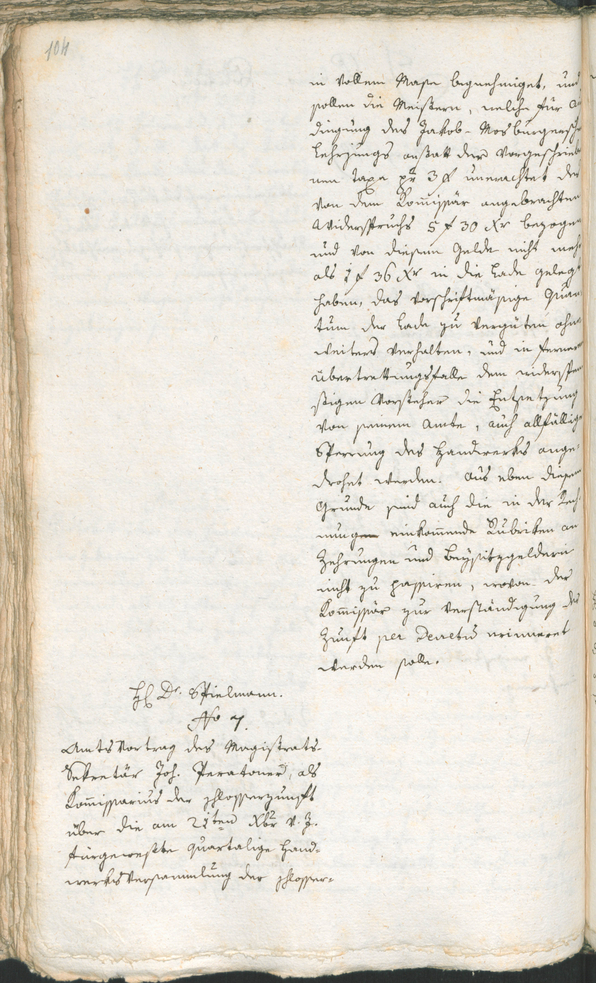 104
in vollem Mase begnehmiget, und
sollen die Meistern, welche für
dingung des Jakob-Mosburgersch
Lehrjungs anstatt der vorgeschrieb
nen Taxe pr 3 f unerachtet des
von dem Kommißär angebrachten
Widerspruchs 5 f 30 xr bezogen
und von diesem Gelde nicht mehr
als 1 f 36 xr in die Lade gelegt
haben, das vorschriftmäßige Quan
tum der Lade zu vergüten ohne
weiters verhalten, und in fernern
übertrettungsfalle dem widerspen
stigen Vorsteher die Entsetzung
von seinem Amte, auch allfällige
Sperrung des Handwerkes ange
drohet werden. Aus eben diesem
Grunde sind auch die in der Rech
nungen einkommende Rubriken an
Zehrungen und Beysitzgeldern
nicht zu passiren, wovon der
Kommißär zur Verständigung der
Zunft per Decretum erinneret
werden solle.
H. Dr. Spielmann.
No 7.
Amtsvortrag des Magistrats-
Sekretär Joh. Peratoner, als
Kommissarius der schlosserzunft
über die am 21ten Xbr v. J.
fürgeweste quartalige Hand-
werksversammlung der schlosser-